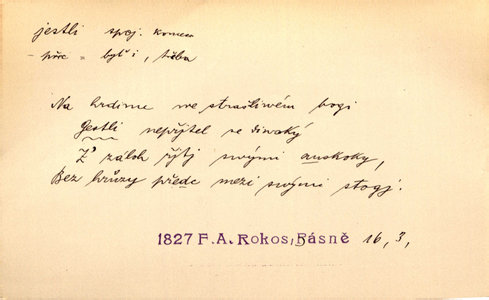 jestli spoj. konces.
- přec = byť i, třeba
Na hrdinu we strašliwém bogi
Gestli nepřjtel se diwoký
Z' záloh řjtj swými auskoky,
Bez hrůzy předc mezi swými stogj.
1827 F. A. Rokos, Básně 16, 3,